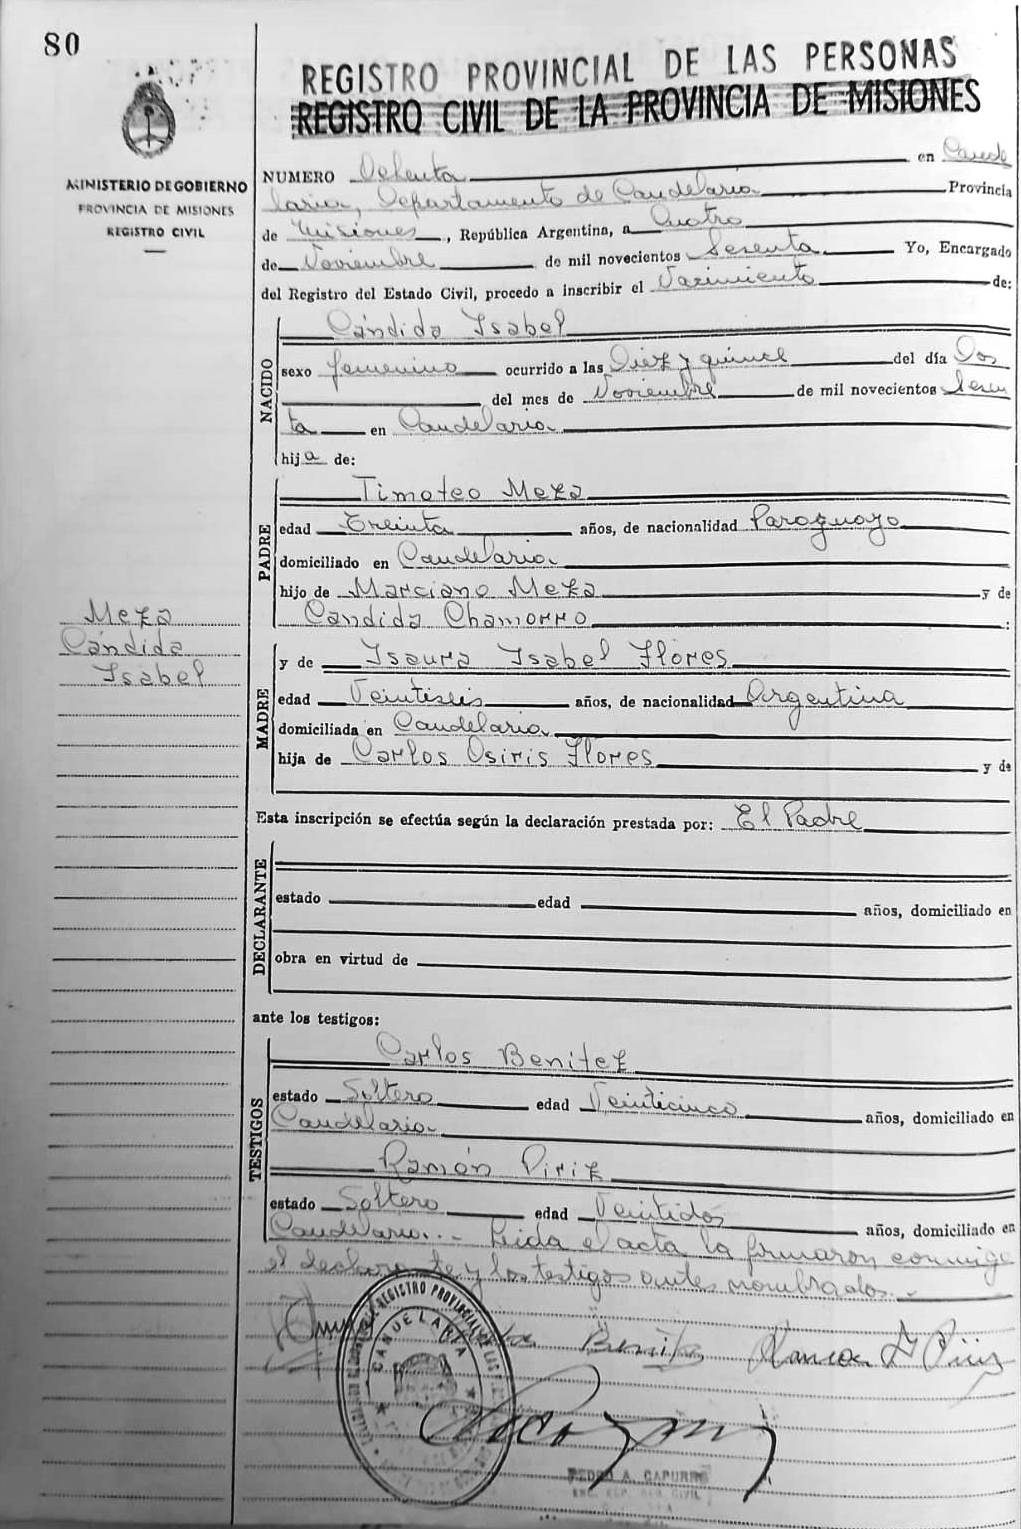 80
REGISTRO PROVINCIAL DE LAS PERSONAS
REGISTRO CIVIL DE LA PROVINCIA DE MISIONES
MINISTERIO DE GOBIERNO
PROVINCIA DE MISIONES
REGISTRO CIVIL
NUMERO Ochenta en Cande
laria, Departamento de Candelaria Provincia
de Misiones, República Argentina, a Cuatro
de Noviembre de mil novecientos Sesenta. Yo, Encargado
del Registro del Estado Civil, procedo a inscribir el Nacimiento de:
NACIDO
Cándida Isabel
sexo femenino ocurrido a las Diez y quince del día Dos
del mes de Noviembre de mil novecientos Sesen
ta en Candelaria
hija de:
PADRE
Timoteo Meza
edad Treinta años, de nacionalidad Paraguayo
domiciliado en Candelaria
hijo de Marciano Meza y de
Candida Chamorro :
Meza
Cándida
Isabel
MADRE
y de Isaura Isabel Flores
edad Veintiseis años, de nacionalidad Argentina
domiciliada en Candelaria
hija de Carlos Osiris Flores y de
Esta inscripción se efectúa según la declaración prestada por: El Padre
DECLARANTE
estado edad años, domiciliado en
obra en virtud de
ante los testigos:
TESTIGOS
Carlos Benitez
estado Soltero edad Veinticinco años, domiciliado en
Candelaria
Ramón Piriz
estado Soltero edad Veintidos años, domiciliado en
Candelaria.- Leida el acta la firmaron conmigo
el declarante y los testigos antes nombrados.-
REGISTRO PROVINCIAL DE LAS
CANDELARIA
Benitez Ramon Piriz
PEDRO A. CAPURRO